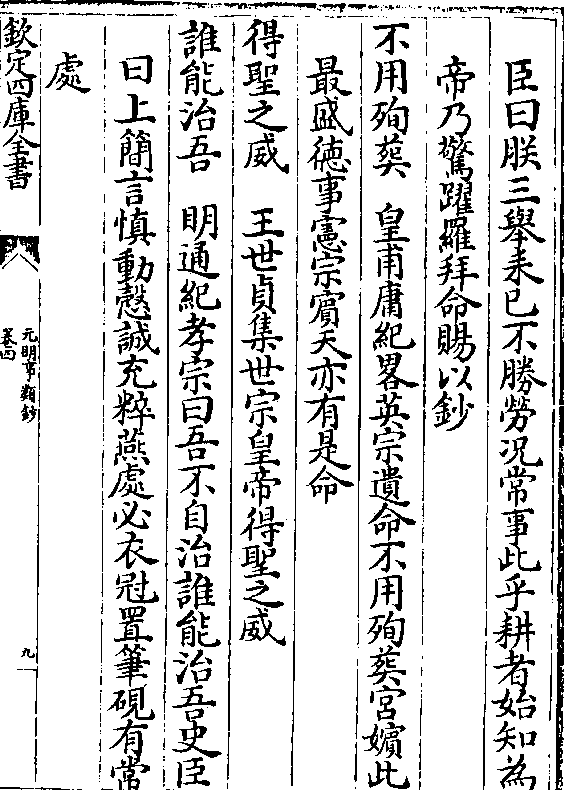 臣曰朕三舉耒已不勝勞况常事此乎耕者始知為
帝乃驚躍羅拜命賜以鈔
不用殉葬　皇甫庸紀畧英宗遺命不用殉葬宮嬪此
最盛徳事憲宗賔天亦有是命
得聖之威　王世貞集世宗皇帝得聖之威
誰能治吾　明通紀孝宗曰吾不自治誰能治吾史臣
曰上簡言慎動慤誠充粹燕處必衣冠置筆硯有常
處
欽定四庫全書
元明事類鈔
卷四
九